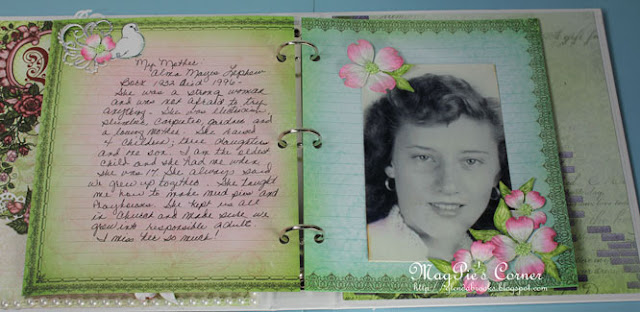 My Mother
Alma Mayre
Born 1932 Died 1996
She was a strong woman
and was not afraid to try
anything. She was electrician
plumber, carpenter, and
a loving Mother. She raised
4 children; three daughters
and one son. I am the oldest
child and she had me when
she was 17. She always said
we grew up together. She taught
me how to make mud pies and
. She kept us all
in church and made sure we
grew into responsible adults.
I miss her so much!
A gift for
MagPie's Corner